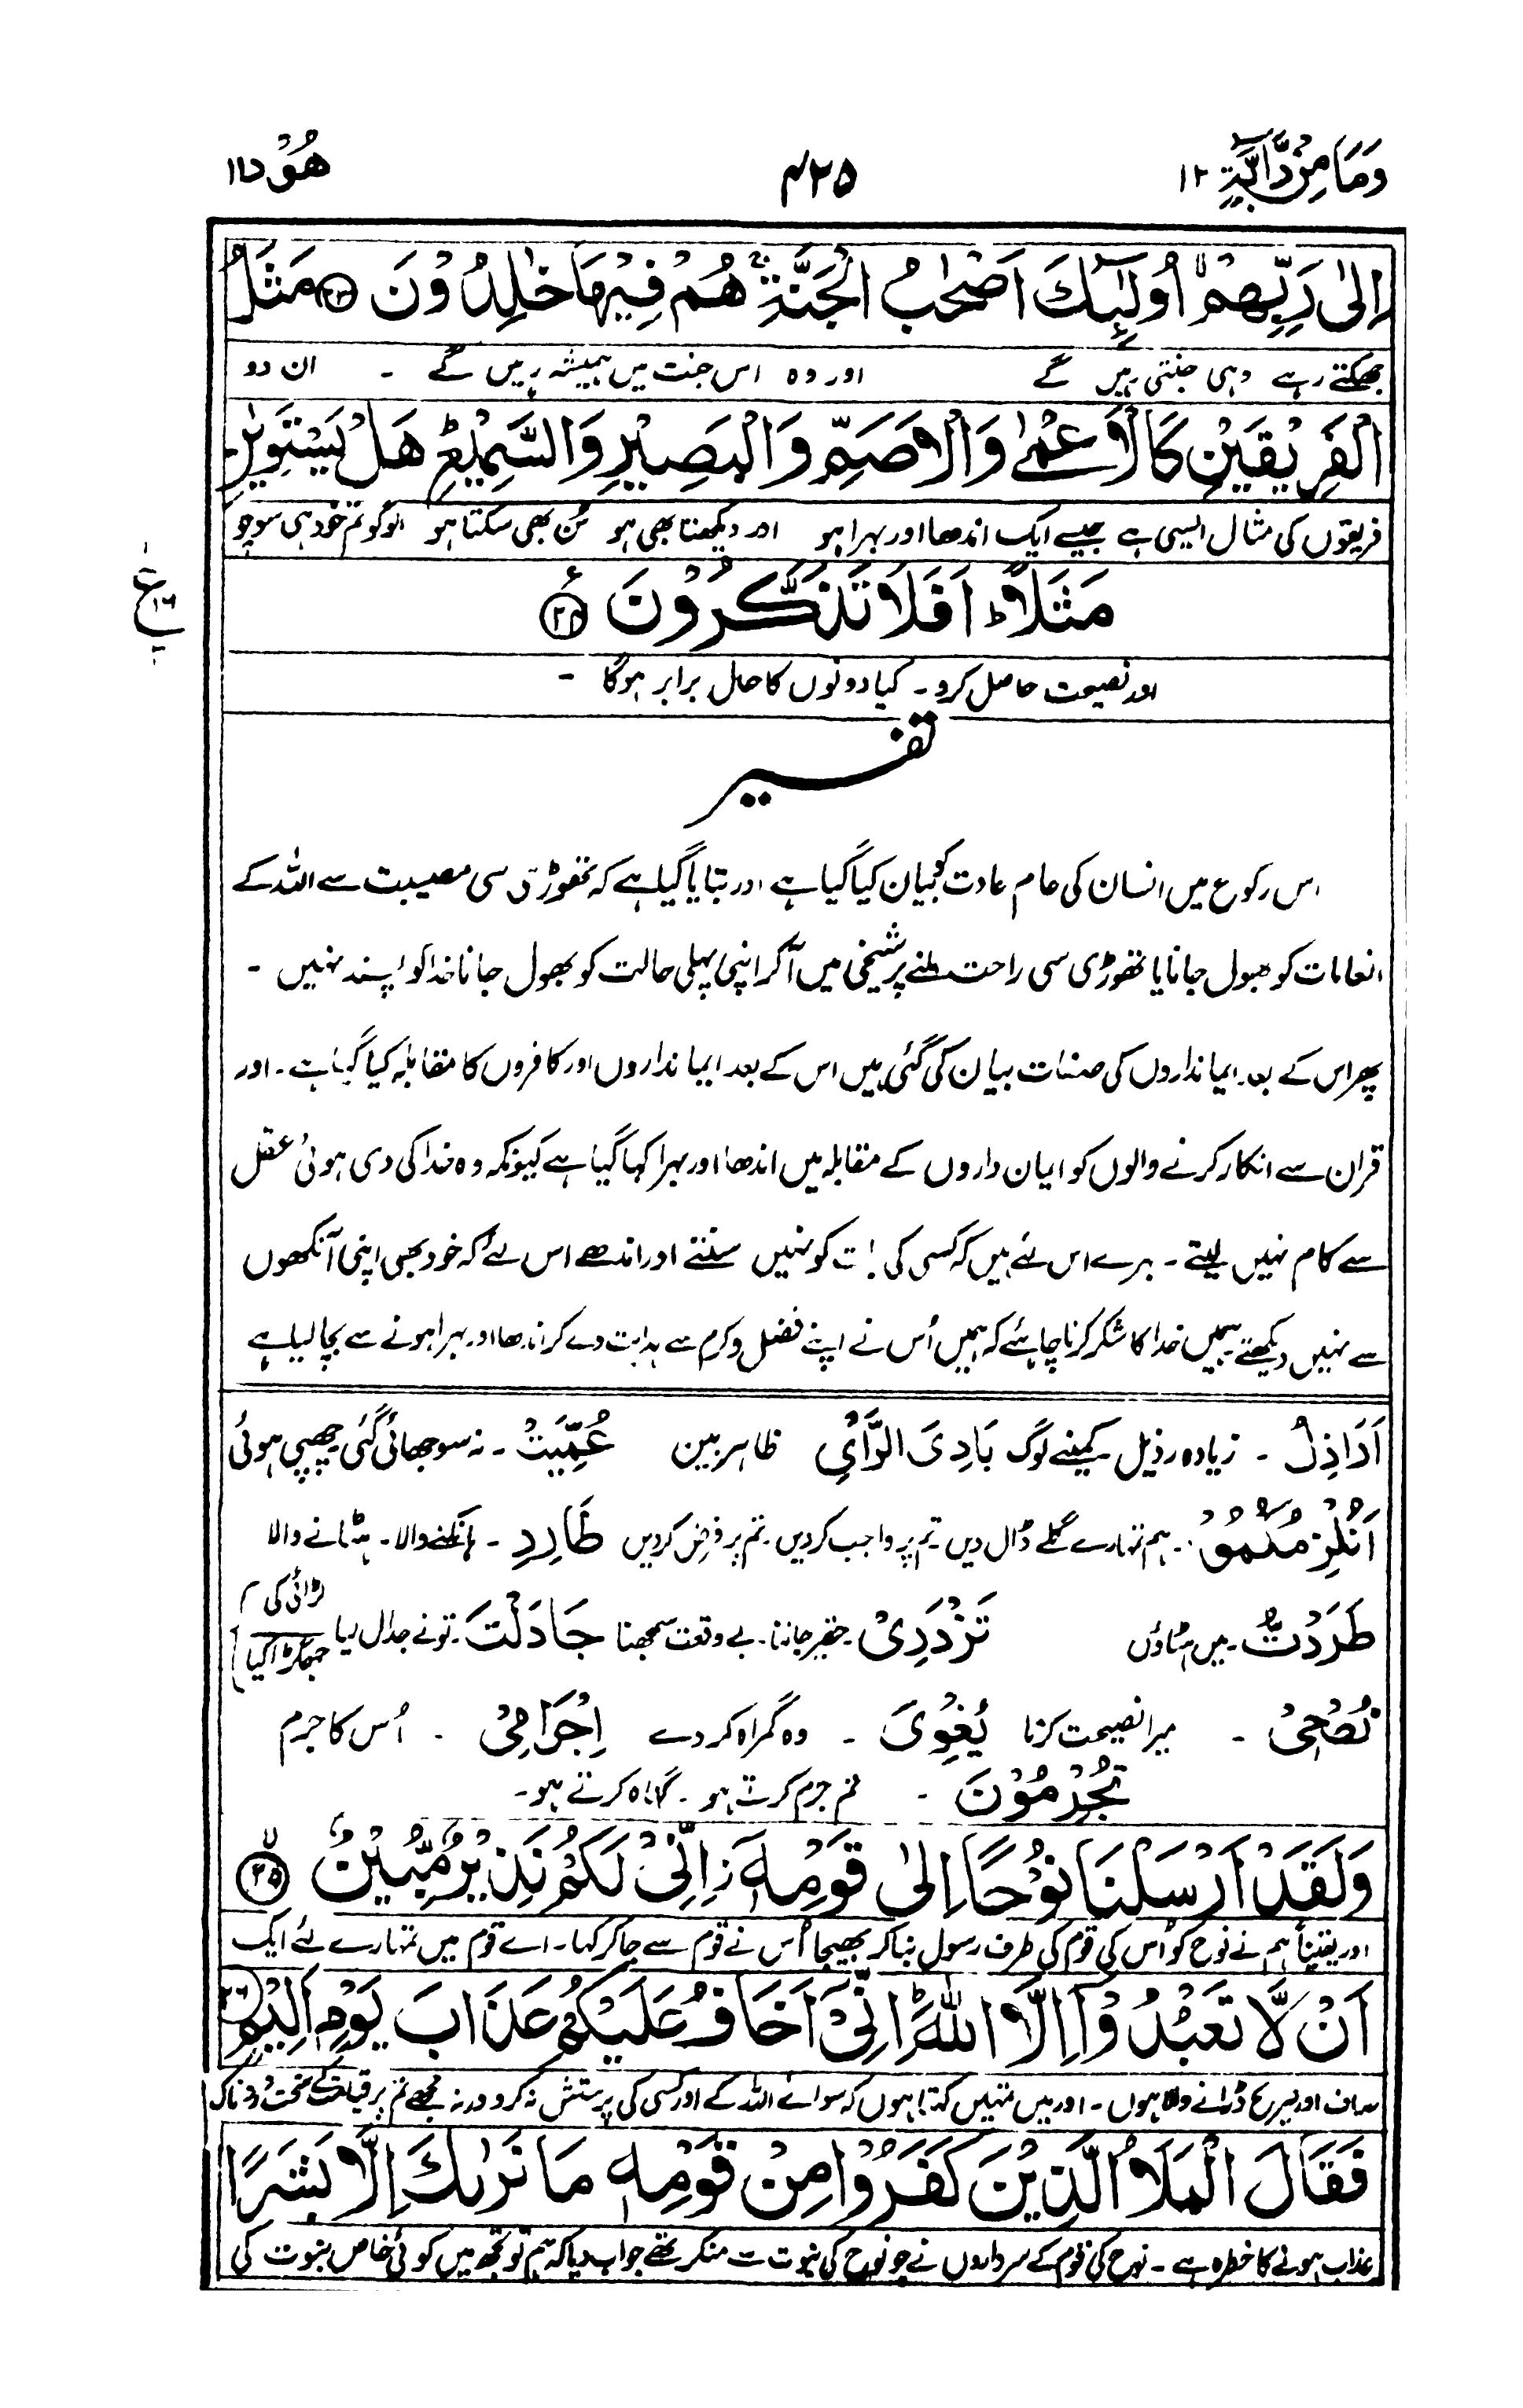 وَمَا مِنْ دَآبَّةٍ ۱۲
۴۲۵
هُوْد ۱۱
اِلٰى رَبِّهِمْ اُولٰٓئِكَ اَصْحٰبُ الْجَنَّةِ هُمْ فِيْهَا خٰلِدُوْنَ ۲۳ مَثَلُ
جھکتے رہے وہی جنتی رہیں گے اور وہ اس جنت میں ہمیشہ رہیں گے ۔ ان دو
الْفَرِيْقَيْنِ كَالْاَعْمٰى وَالْاَصَمِّ وَالْبَصِيْرِ وَالسَّمِيْعِ ط هَلْ يَسْتَوِيٰنِ
فریقوں کی مثال ایسی ہے جیسے ایک اندھا اور بہرا ہو اور دیکھتا بھی ہو سُن بھی سکتا ہو لوگو تم خود ہی سوچو
مَثَلًا ط اَفَلَا تَذَكَّرُوْنَ ۲۴
ع ۱۶
اور نصیحت حاصل کرو ۔ کیا دونوں کا حال برابر ہوگا ۔
تفسیر
اس رکوع میں انسان کی عام عادت کو بیان کیا گیا ہے اور بتایا گیا ہے کہ تھوڑی سی مصیبت سے اللہ کے
انعامات کو بھول جانا یا تھوڑی سی راحت ملنے پر شیخی میں آکر اپنی پہلی حالت کو بھول جانا خدا کو پسند نہیں ۔
پھر اس کے بعد ایمانداروں کی صفات بیان کی گئی ہیں اس کے بعد ایمانداروں اور کافروں کا مقابلہ کیا گیا ہے ۔ اور
قرآن سے انکار کرنے والوں کو ایمان داروں کے مقابلہ میں اندھا اور بہرا کہا گیا ہے کیونکہ وہ خدا کی دی ہوئی عقل
سے کام نہیں لیتے ۔ بہرے اس لئے ہیں کہ کسی کی بات کو نہیں سنتے اور اندھے اس لئے کہ خود بھی اپنی آنکھوں
سے نہیں دیکھتے ہمیں خدا کا شکر کرنا چاہئے کہ ہمیں اُس نے اپنے فضل و کرم سے ہدایت دے کر اندھا اور بہرا ہونے سے بچا لیا ہے
اَرَاذِلُ ۔ زیادہ رذیل کمینے لوگ بَادِىَ الرَّاْىِ ظاہر بین عُمِّيَتْ ۔ نہ سوجھائی گئی چھپی ہوئی
اَنُلْزِمُكُمُوْ ۔ ہم تمہارے گلے ڈال دیں تم پر واجب کردیں ۔ تم پر فرض کردیں طَارِدِ ۔ ہانکنے والا ۔ ہٹانے والا
طَرَدْتُّ ۔ میں ہٹاؤں تَزْدَرِىْ ۔ حقیر جاننا ۔ بے وقعت سمجھنا جَادَلْتَ ۔ تونے جدال کیا لڑائی کی جھگڑا کیا
نُصْحِىْ ۔ میرا نصیحت کرنا يُغْوِىَ ۔ وہ گمراہ کردے اِجْرَامِىْ ۔ اُس کا جرم
تُجْرِمُوْنَ ۔ تم جرم کرتے ہو ۔ گناہ کرتے ہو ۔
وَلَقَدْ اَرْسَلْنَا نُوْحًا اِلٰى قَوْمِهٖٓ ز اِنِّىْ لَكُمْ نَذِيْرٌ مُّبِيْنٌ ۲۵
اور یقیناً ہم نے نوح کو اُس کی قوم کی طرف رسول بنا کر بھیجا اُس نے قوم سے جا کر کہا ۔ اے قوم میں تمہارے لئے ایک
اَنْ لَّا تَعْبُدُوْٓا اِلَّا اللّٰهَ ط اِنِّىْٓ اَخَافُ عَلَيْكُمْ عَذَابَ يَوْمٍ اَلِيْمٍ ۲۶
صاف اور صریح ڈرانے والا ہوں ۔ اور میں تمہیں کہتا ہوں کہ سوائے اللہ کے اور کسی کی پرستش نہ کرو ورنہ مجھے تم پر قیامت کے سخت دردناک
فَقَالَ الْمَلَاُ الَّذِيْنَ كَفَرُوْا مِنْ قَوْمِهٖ مَا نَرٰىكَ اِلَّا بَشَرًا
عذاب ہونے کا خطرہ ہے ۔ نوح کی قوم کے سرداروں نے جو نوح کی نبوت سے منکر تھے جواب دیا کہ ہم تو تجھ میں کوئی خاص نبوت کی